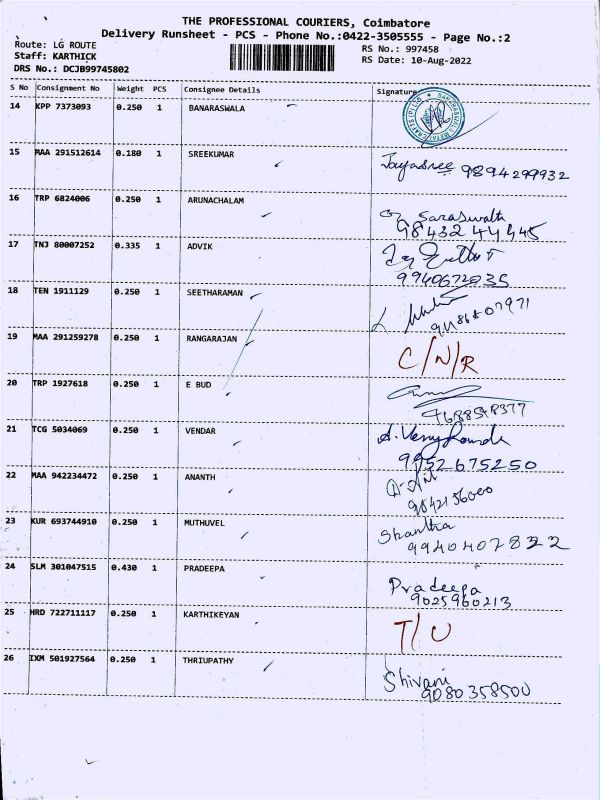 THE PROFESSIONAL COURIERS, Coimbatore
Delivery Runsheet - PCS - Phone No.:0422-3505555 - Page No.:2
Route: LG ROUTE
Staff: KARTHICK
DRS No.: DCJB99745802
RS No.: 997458
RS Date: 10-Aug-2022
S No Consignment No Weight PCS Consignee Details Signature
14 KPP 7373093 0.250 1 BANARASWALA
15 MAA 291512614 0.180 1 SREEKUMAR Jayasree 9894299932
16 TRP 6824006 0.250 1 ARUNACHALAM Saraswathi
98432 44445
17 TNJ 80007252 0.335 1 ADVIK
9940672035
18 TEN 1911129 0.250 1 SEETHARAMAN
19 MAA 291259278 0.250 1 RANGARAJAN C/N/R
20 TRP 1927618 0.250 1 E BUD
21 TCG 5034069 0.250 1 VENDAR
9952675250
22 MAA 942234472 0.250 1 ANANTH
9842156000
23 KUR 693744910 0.250 1 MUTHUVEL Shantha
9940407822
24 SLM 301047515 0.430 1 PRADEEPA Pradeepa
9025960213
25 HRD 722711117 0.250 1 KARTHIKEYAN T/U
26 IXM 501927564 0.250 1 THRIUPATHY Shivani
9080358500